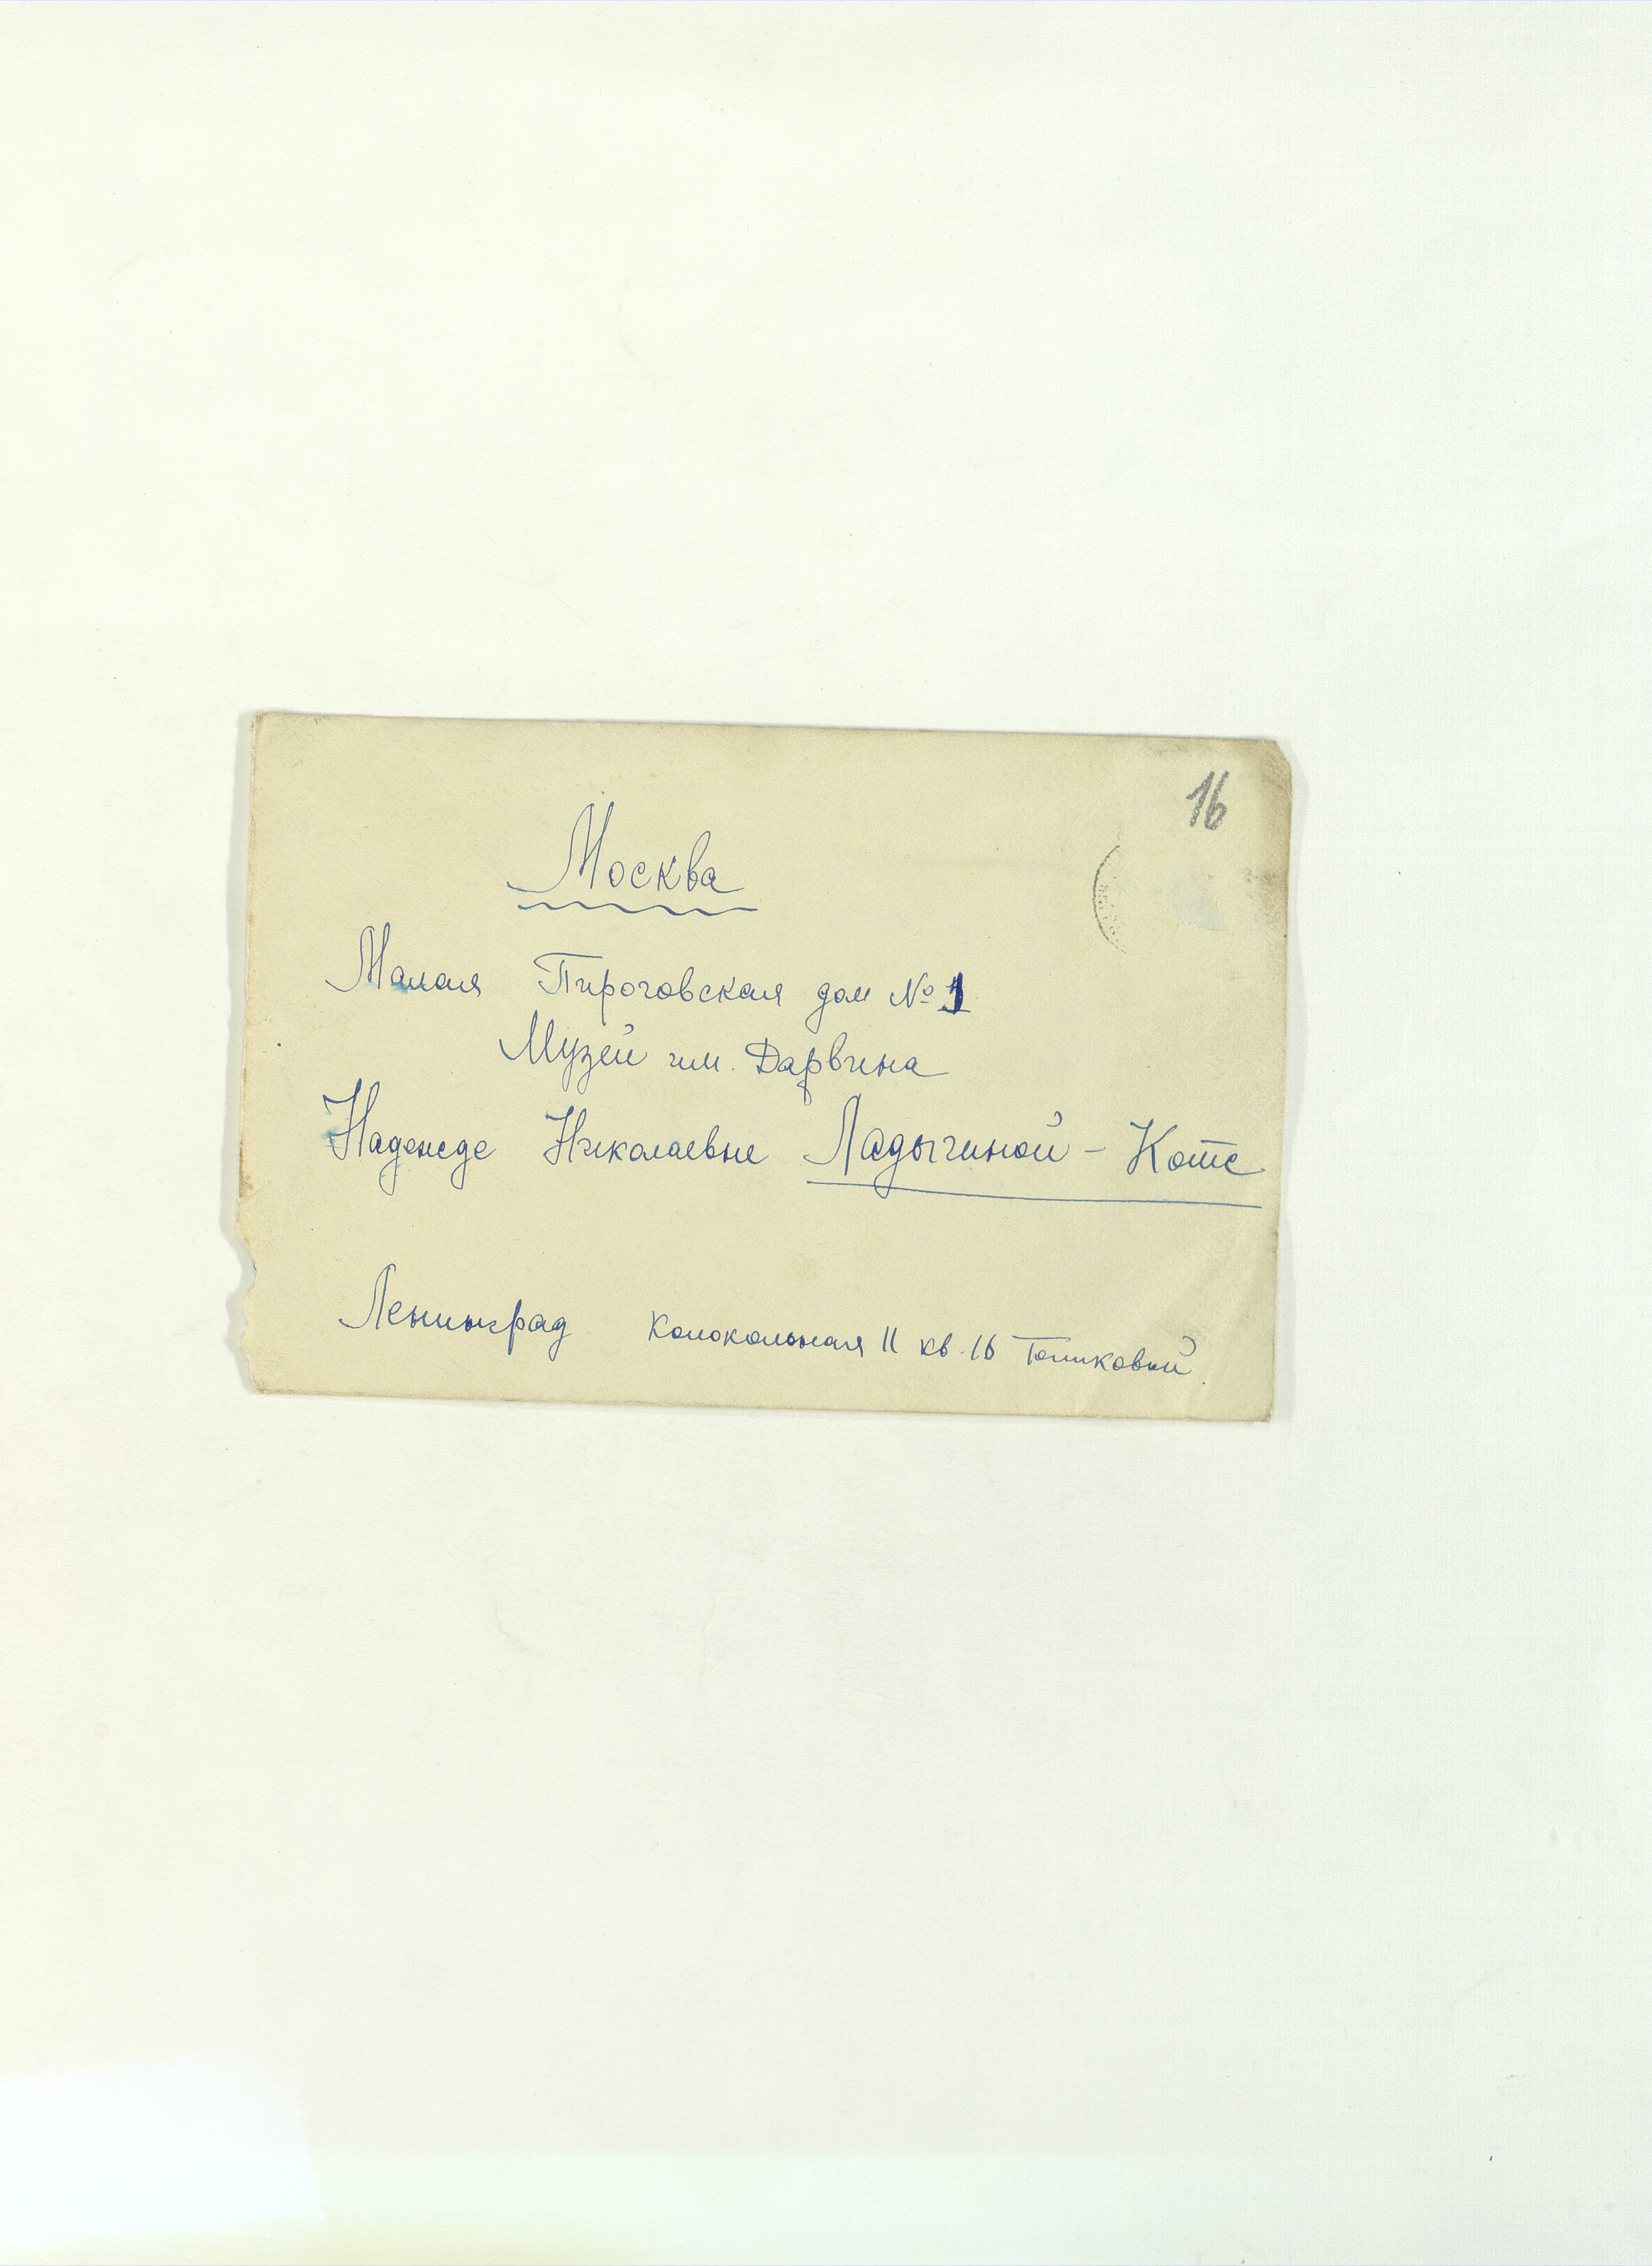 16
Москва
Малая Пироговская дом № 1
Музей им. Дарвина
Надежде Николаевне Ладыгиной - Котс
Ленинград Колокольная 11 кв. 16